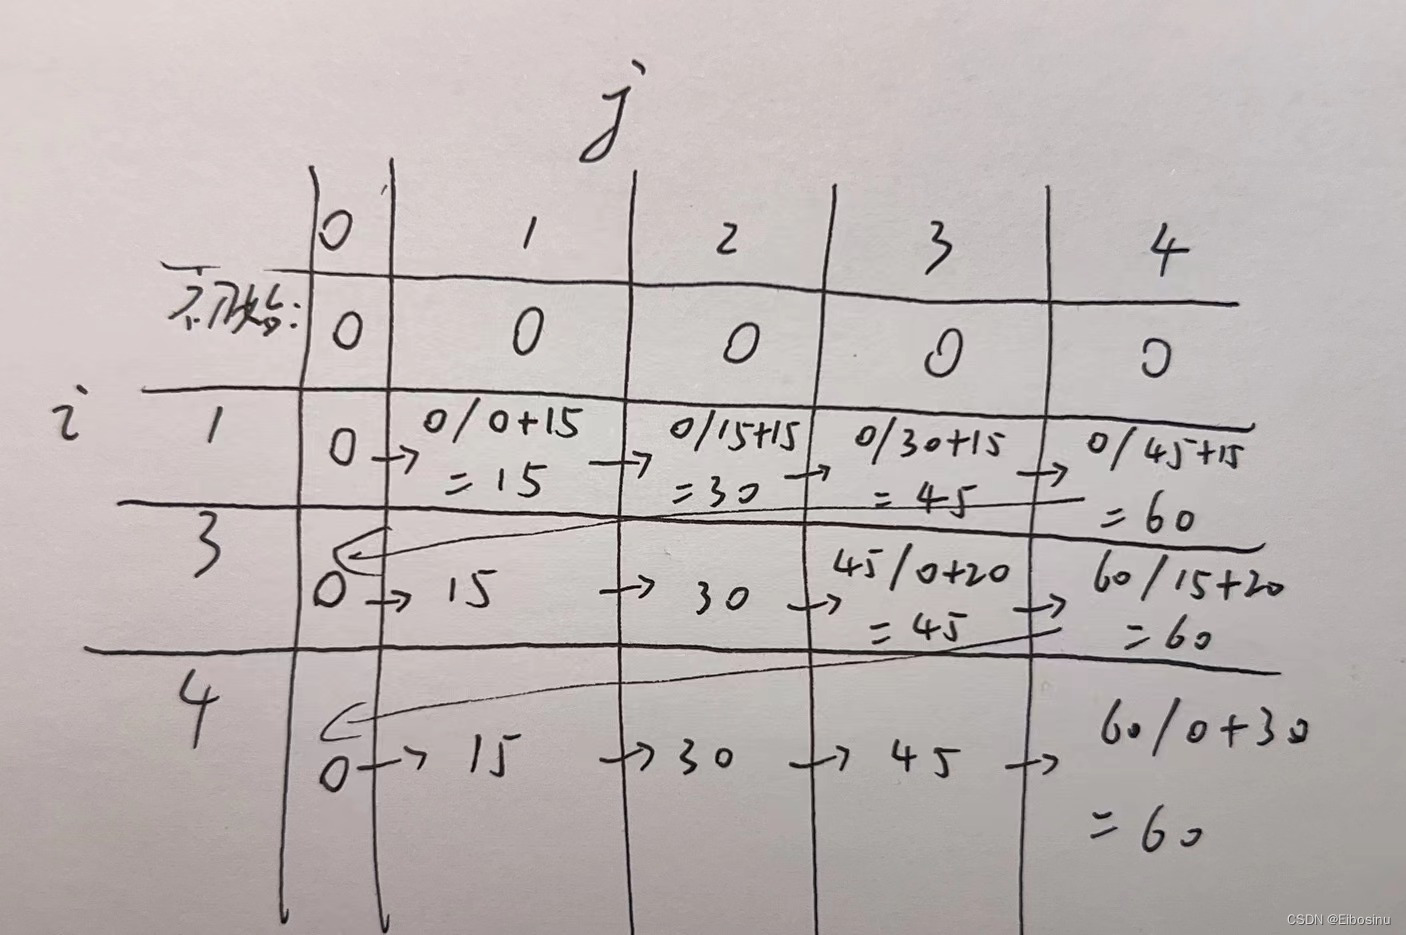 j
0 1 2 3 4
不放物品: 0 0 0 0 0
i 1 0 → 0/0+15 → 0/15+15 → 0/30+15 → 0/45+15
=15 =30 =45 =60
3 0 → 15 → 30 → 45/0+20 → 60/15+20
=45 =60
4 0 → 15 → 30 → 45 → 60/0+30
=60
CSDN @Eibosinu